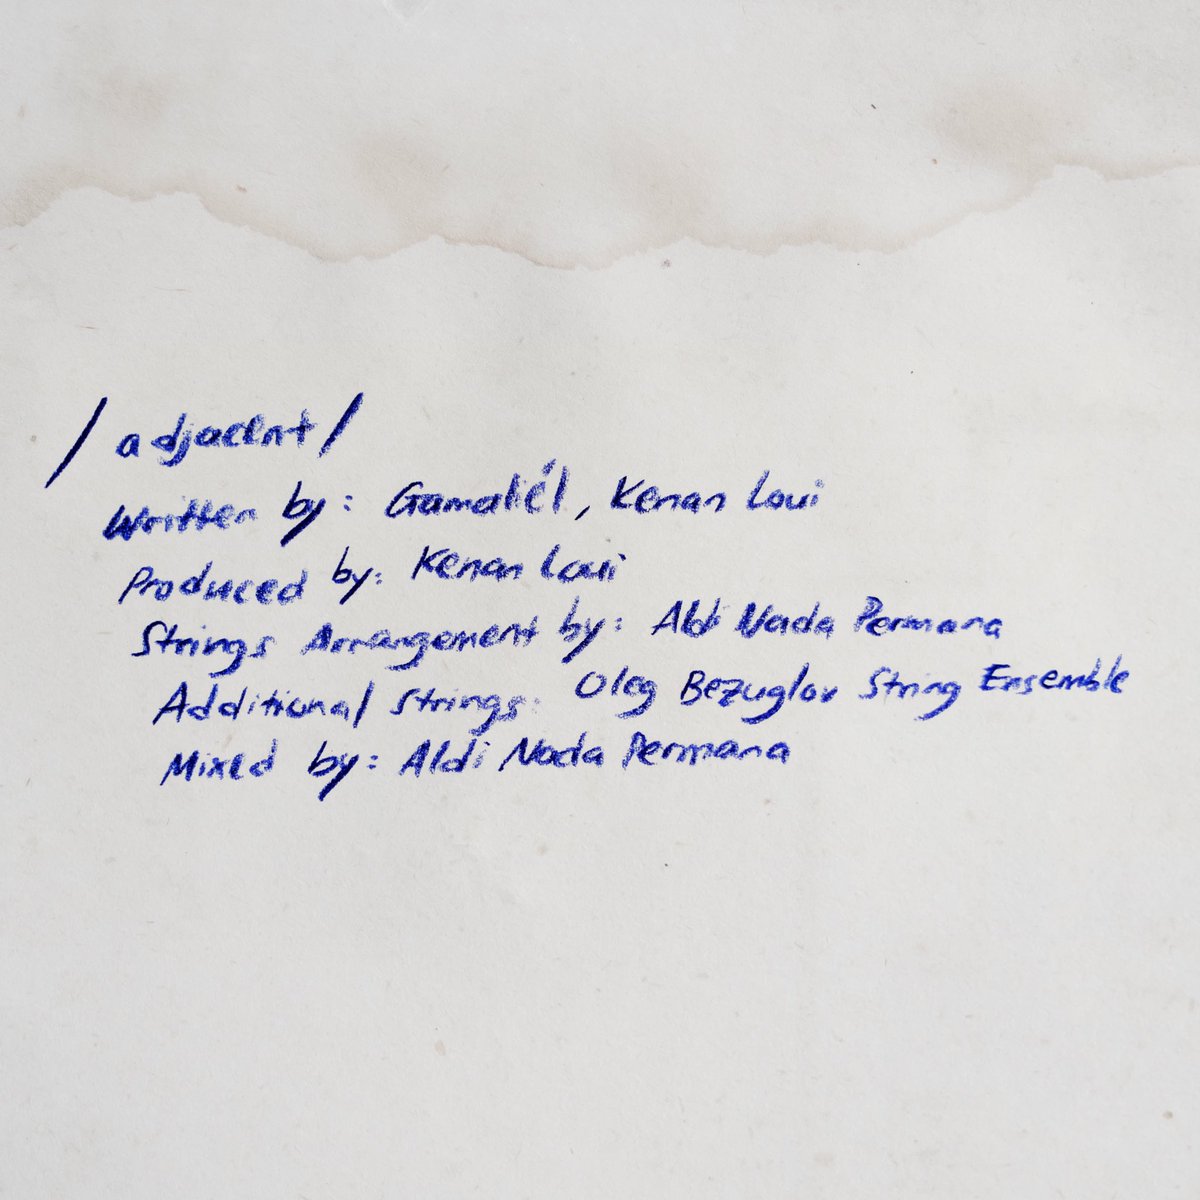 /adjacent/
Written by: Gamaliél, Kenan Loui
Produced by: Kenan Loui
Strings Arrangement by: Aldi Nada Permana
Additional strings: Oleg Bezuglov String Ensemble
Mixed by: Aldi Nada Permana